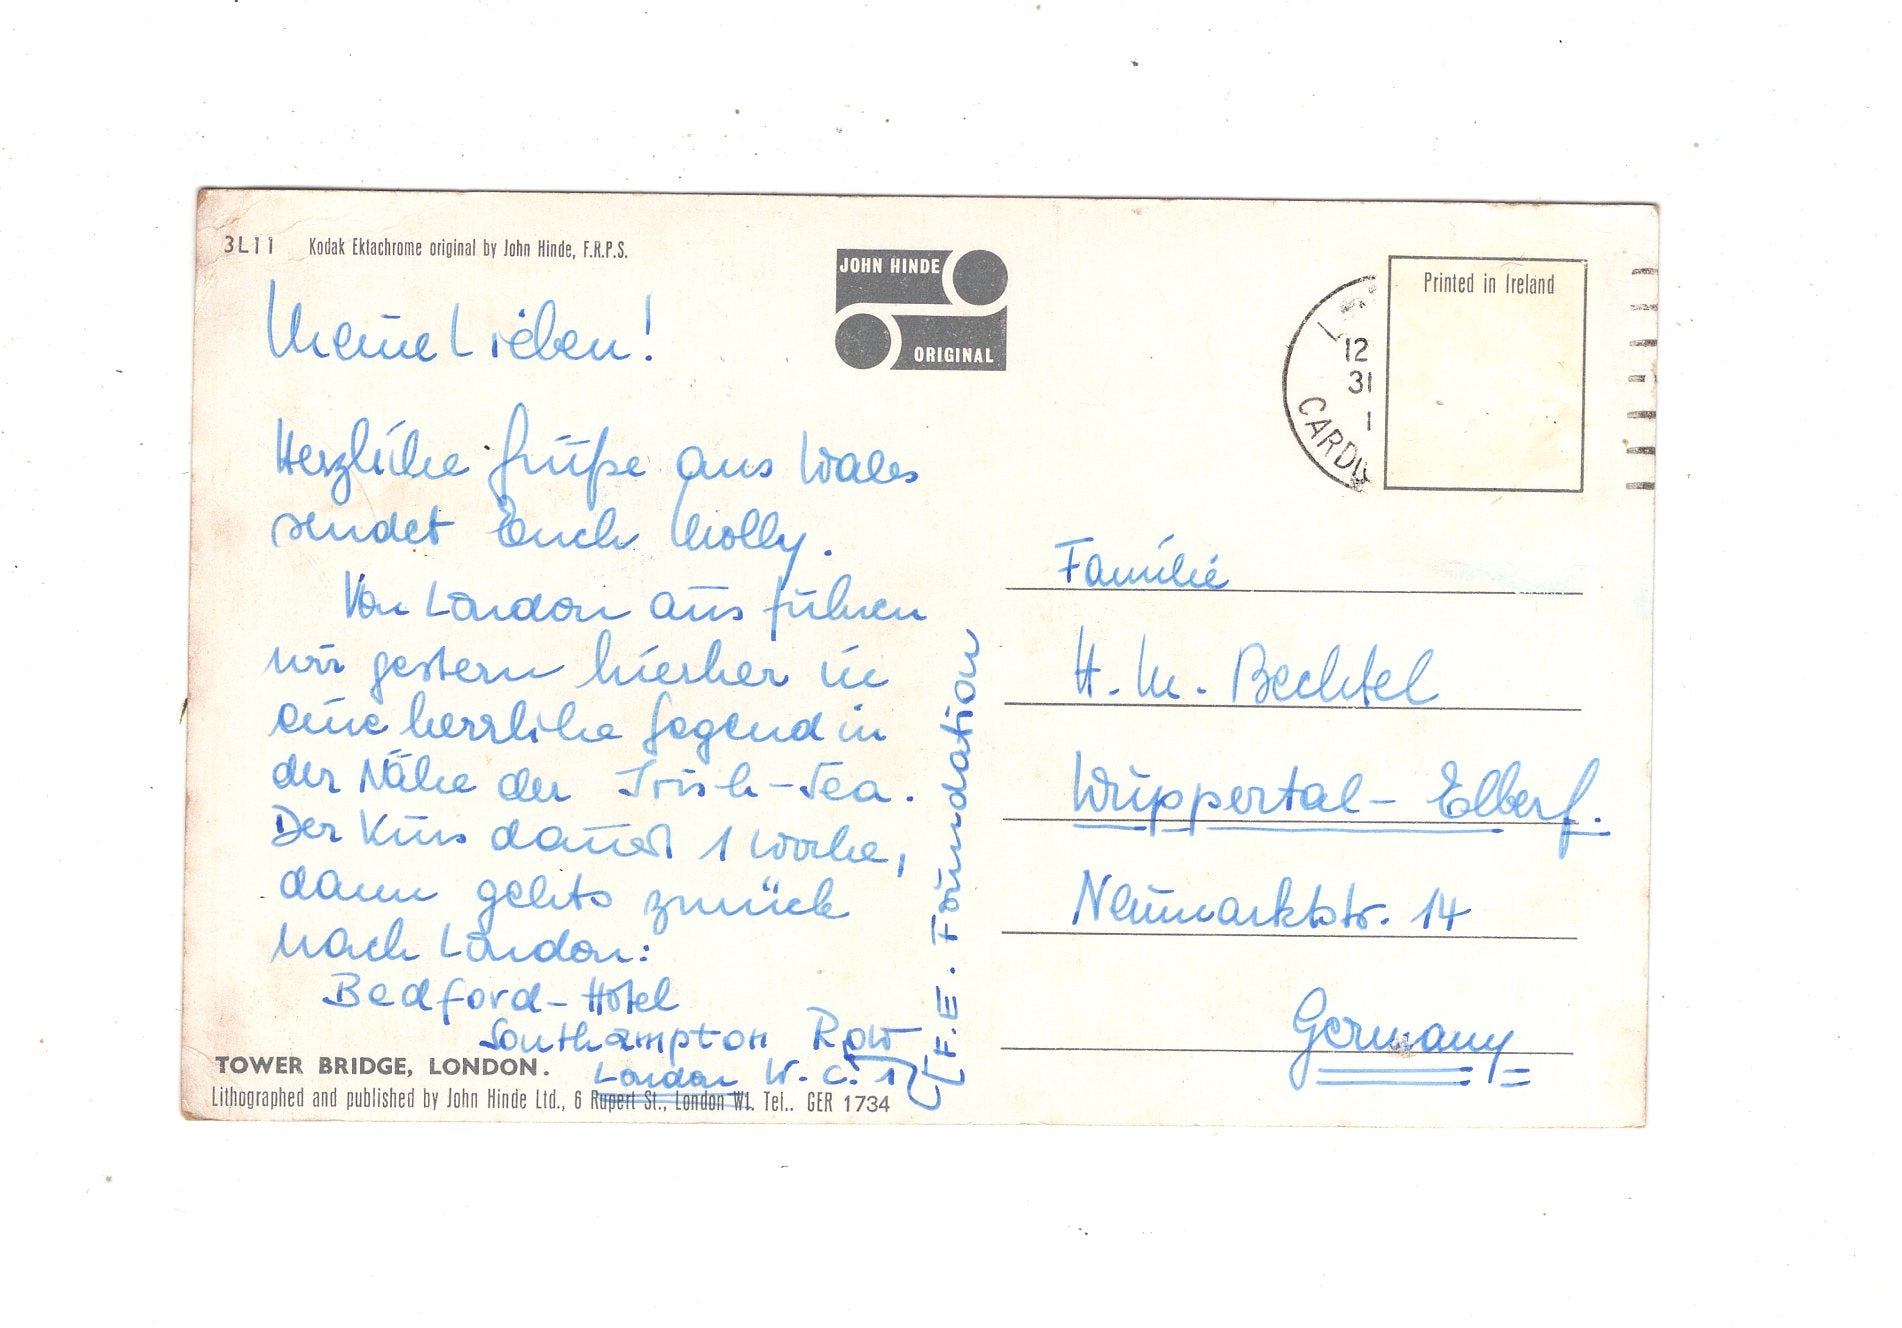 3L11 Kodak Ektachrome original by John Hinde, F.R.P.S.
JOHN HINDE
ORIGINAL
Printed in Ireland
12
31
1
CARDI
Meine Lieben!
Herzliche Grüße aus Wales
sendet Euch Molly.
Von London aus fuhren
wir gestern hierher in
eine herrliche Gegend in
der Nähe der Irish-Sea.
Der Kurs dauert 1 Woche,
dann gehts zurück
nach London:
Bedford-Hotel
Southampton Row
London W.C.1
(F.E. Foundation
TOWER BRIDGE, LONDON.
Lithographed and published by John Hinde Ltd., 6 Rupert St., London W1. Tel.. GER 1734
Familie
H. M. Bechtel
Wuppertal-Elberf.
Neumarktstr. 14
Germany